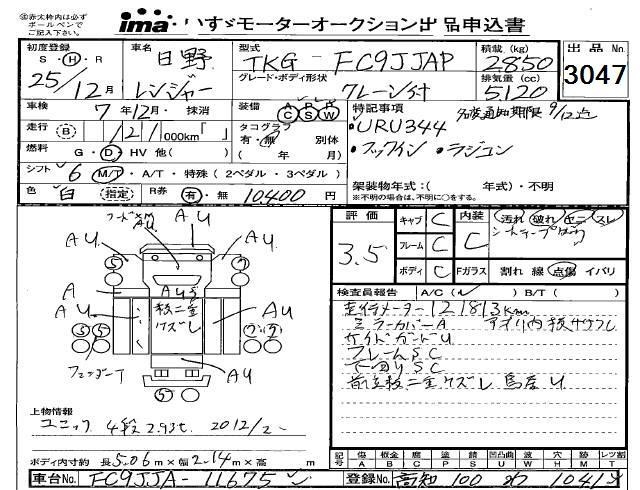 ※赤太枠内は必ずボールペンでご記入下さい。
ima いすゞモーターオークション出品申込書
初度登録 S・H・R 25/12月
車名 日野 レンジャー
型式 TKG-FC9JJAP
グレード・ボディ形状 クレーン付
積載(kg) 2850
排気量(cc) 5,120
出品No. 3047
車検 7年12月・抹消
走行 B /121,000km「 」
燃料 G・D・HV 他( )
シフト 6 M/T・A/T・特殊(2ペダル・3ペダル)
色 白 (指定) R券 有・無 10400円
装備 A/C P/S P/W
タコグラフ 有・無 別体 ( 年 月)
特記事項 名変通知期限 9/12迄
・URU344
・フックイン ・ラジコン
架装物年式:( 年式)・不明
※不明の場合は、不明に○をする。
評価 3.5
キャブ C
フレーム C
ボディ C
内装 C
汚れ 破れ ヤニ スレ
Fガラス 割れ 線 点傷 イバリ
検査員報告 A/C( ) B/T( )
走行メーター121813km
ミラーカバーA
サイドガードU
フレームSC
下回りSC
A U
A U
A U
A
A U
A U
A U
上物情報
ユニック 4段 2.93t 2012/2
ボディ内寸約 長5.06m×幅2.14m×高 m
車台No. FC9JJA-11675
記号 傷A 板金B 腐C 塗P 錆S 凹凸曲U 割W 穴H 跡M レツ割T
登録No. 高知 100 1041